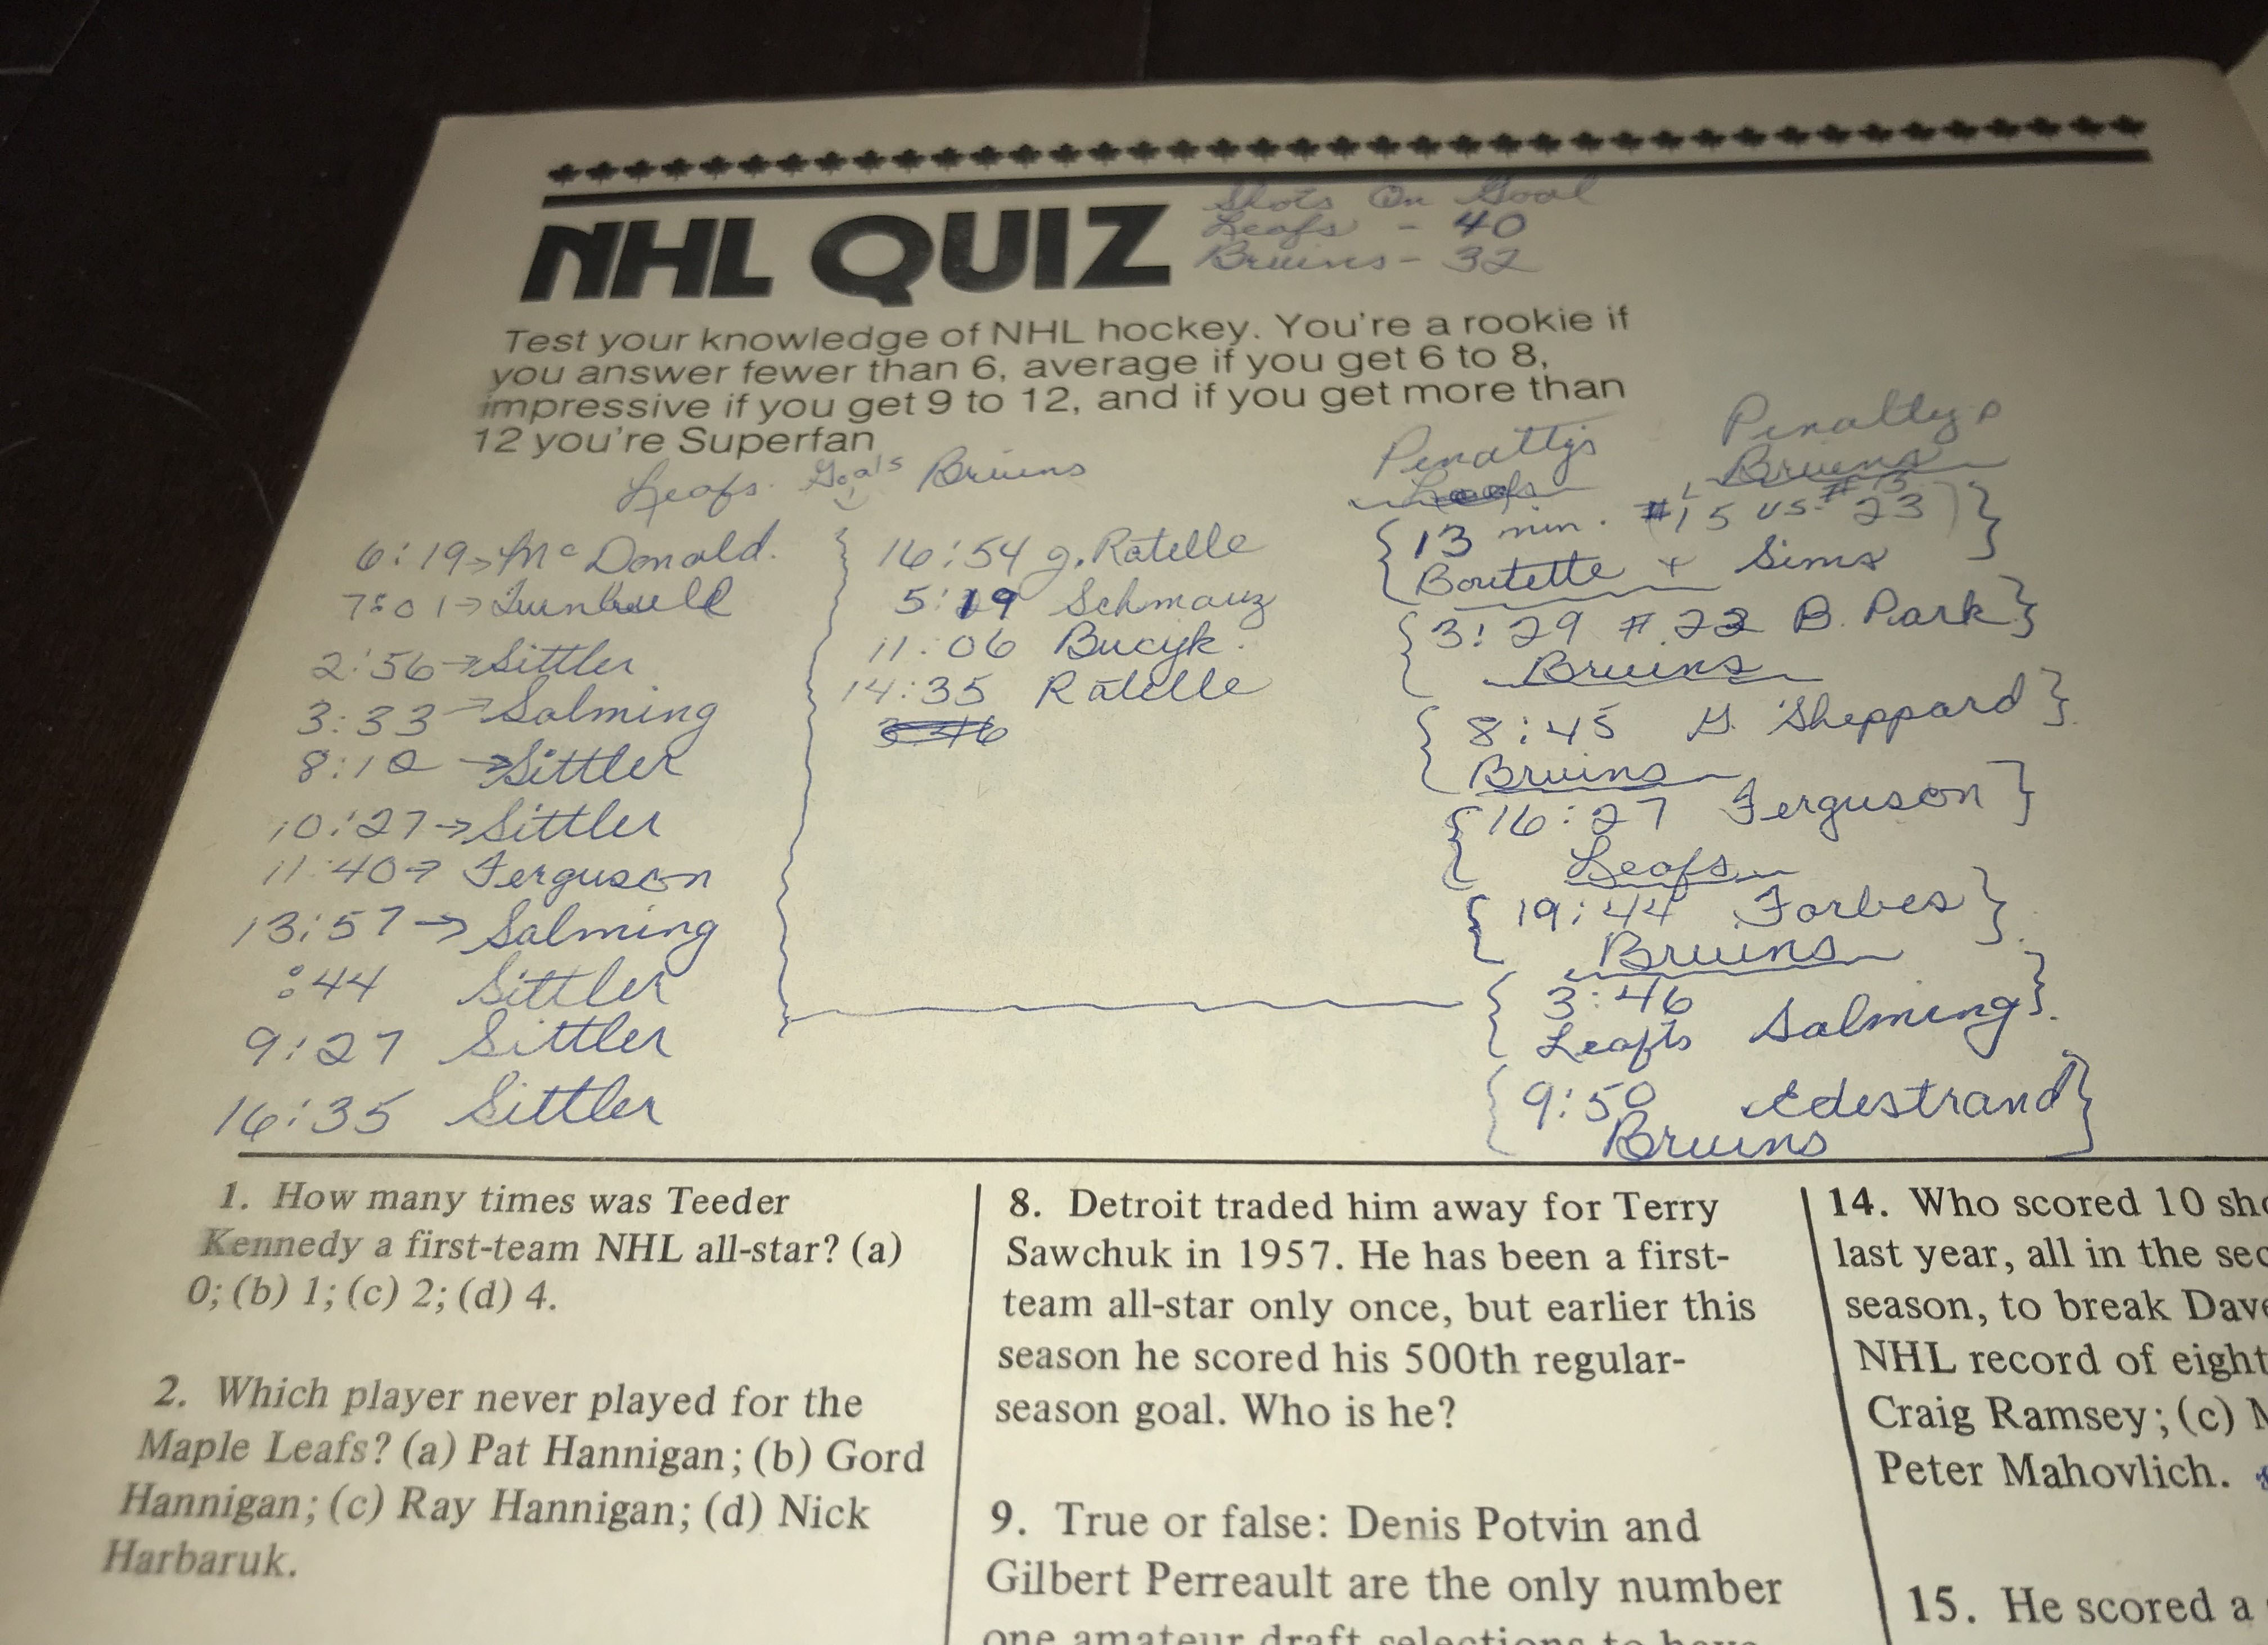 Shots On Goal
Leafs - 40
Bruins - 32
NHL QUIZ
Test your knowledge of NHL hockey. You're a rookie if
you answer fewer than 6, average if you get 6 to 8,
impressive if you get 9 to 12, and if you get more than
12 you're Superfan
Leafs. Goals Bruins
6:19→McDonald.
7:01→Turnbull
2:56→Sittler
3:33→Salming
8:12→Sittler
10:27→Sittler
11:40→Ferguson
13:57→Salming
:44 Sittler
9:27 Sittler
16:35 Sittler
16:54 J. Ratelle
5:19 Schmauz
11:06 Bucyk.
14:35 Ratelle
Penattjs
Leafs
Penaltys
Bruins
{13 min. #15 vs. #23}
Boutette + Sims
{3:29 #22 B. Park}
Bruins
{8:45 G. Sheppard}
Bruins
{16:27 Ferguson}
Leafs
{19:44 Forbes}
Bruins
{3:46
Leafts Salming}.
{9:50 Edestrand}
Bruins
1. How many times was Teeder
Kennedy a first-team NHL all-star? (a)
0; (b) 1; (c) 2; (d) 4.
2. Which player never played for the
Maple Leafs? (a) Pat Hannigan; (b) Gord
Hannigan; (c) Ray Hannigan; (d) Nick
Harbaruk.
8. Detroit traded him away for Terry
Sawchuk in 1957. He has been a first-
team all-star only once, but earlier this
season he scored his 500th regular-
season goal. Who is he?
9. True or false: Denis Potvin and
Gilbert Perreault are the only number
one amateur draft selections to have
14. Who scored 10 sho
last year, all in the sec
season, to break Dave
NHL record of eight
Craig Ramsey; (c) M
Peter Mahovlich.
15. He scored a